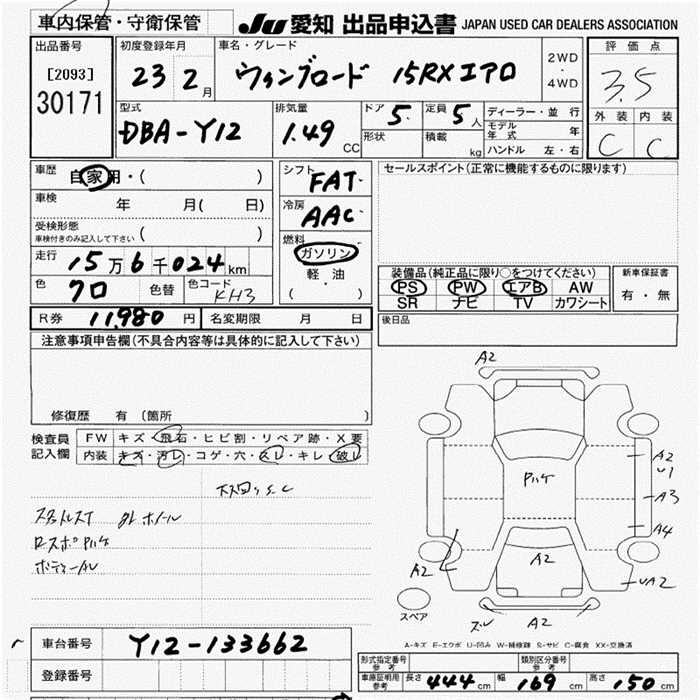 車内保管・守衛保管
JU 愛知 出品申込書 JAPAN USED CAR DEALERS ASSOCIATION
出品番号
[2093]
30171
初度登録年月
23 2月
車名・グレード
ウィングロード 15RXエアロ
2WD
・
4WD
評価点
3.5
外装 内装
C C
型式
DBA-Y12
排気量
1.49 CC
ドア 5
定員 5人
形状
積載 kg
ディーラー・並行
モデル年式 年
ハンドル 左・右
車歴
自家用・( )
車検 年 月( 日)
受検形態
車検付きのみ記入して下さい ( )
走行 15万6千024km
色 クロ 色替 色コード KH3
シフト
FAT
冷房
AAC
燃料
ガソリン
軽・油
( )
セールスポイント(正常に機能するものに限ります)
装備品(純正品に限り○をつけてください)
PS PW エアB AW
SR ナビ TV カワシート
新車保証書
有・無
R券 11,980円 名変期限 月 日
後日品
注意事項申告欄(不具合内容等は具体的に記入して下さい)
修復歴 有(箇所 )
検査員記入欄
FW キズ・飛石・ヒビ割・リペア跡・X要
内装 キズ・汚レ・コゲ・穴・スレ・キレ・破レ
A2
A2
U1
A3
A4
UA2
A2
A2
ズレ A2
スペア
A-キズ E-エクボ U-凹み W-補修跡 S-サビ C-腐食 XX-交換済
車台番号 Y12-133662
登録番号
形式指定番号 参考
類別区分番号 参考
車庫証明用 参考 長さ 444cm 幅 169cm 高さ 150cm